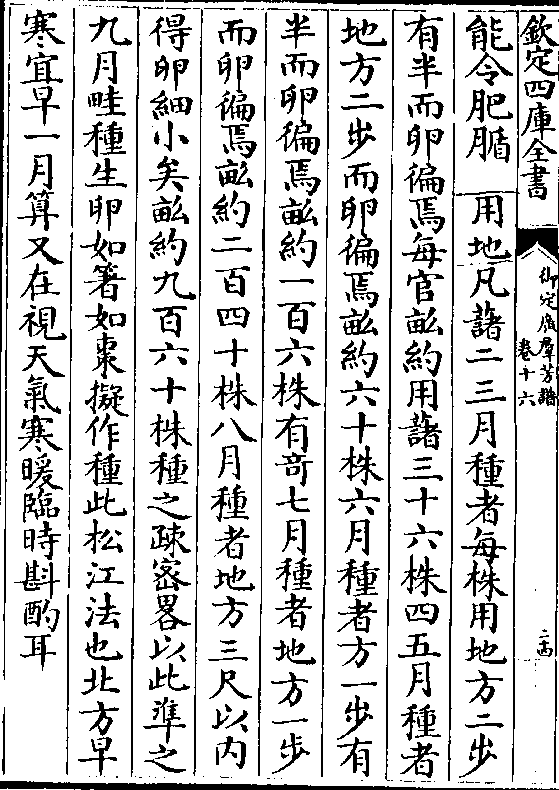 欽定四庫全書
御定廣羣芳譜
卷十六
二十四
能令肥腯　用地凡藷二三月種者每株用地方二步
有半而卵徧焉每官畝約用藷三十六株四五月種者
地方二步而卵徧焉畝約六十株六月種者方一步有
半而卵徧焉畝約一百六株有竒七月種者地方一步
而卵徧焉畝約二百四十株八月種者地方三尺以内
得卵細小矣畝約九百六十株種之疎宻畧以此準之
九月畦種生卵如箸如棗擬作種此松江法也北方早
寒宜早一月算又在視天氣寒暖臨時斟酌耳